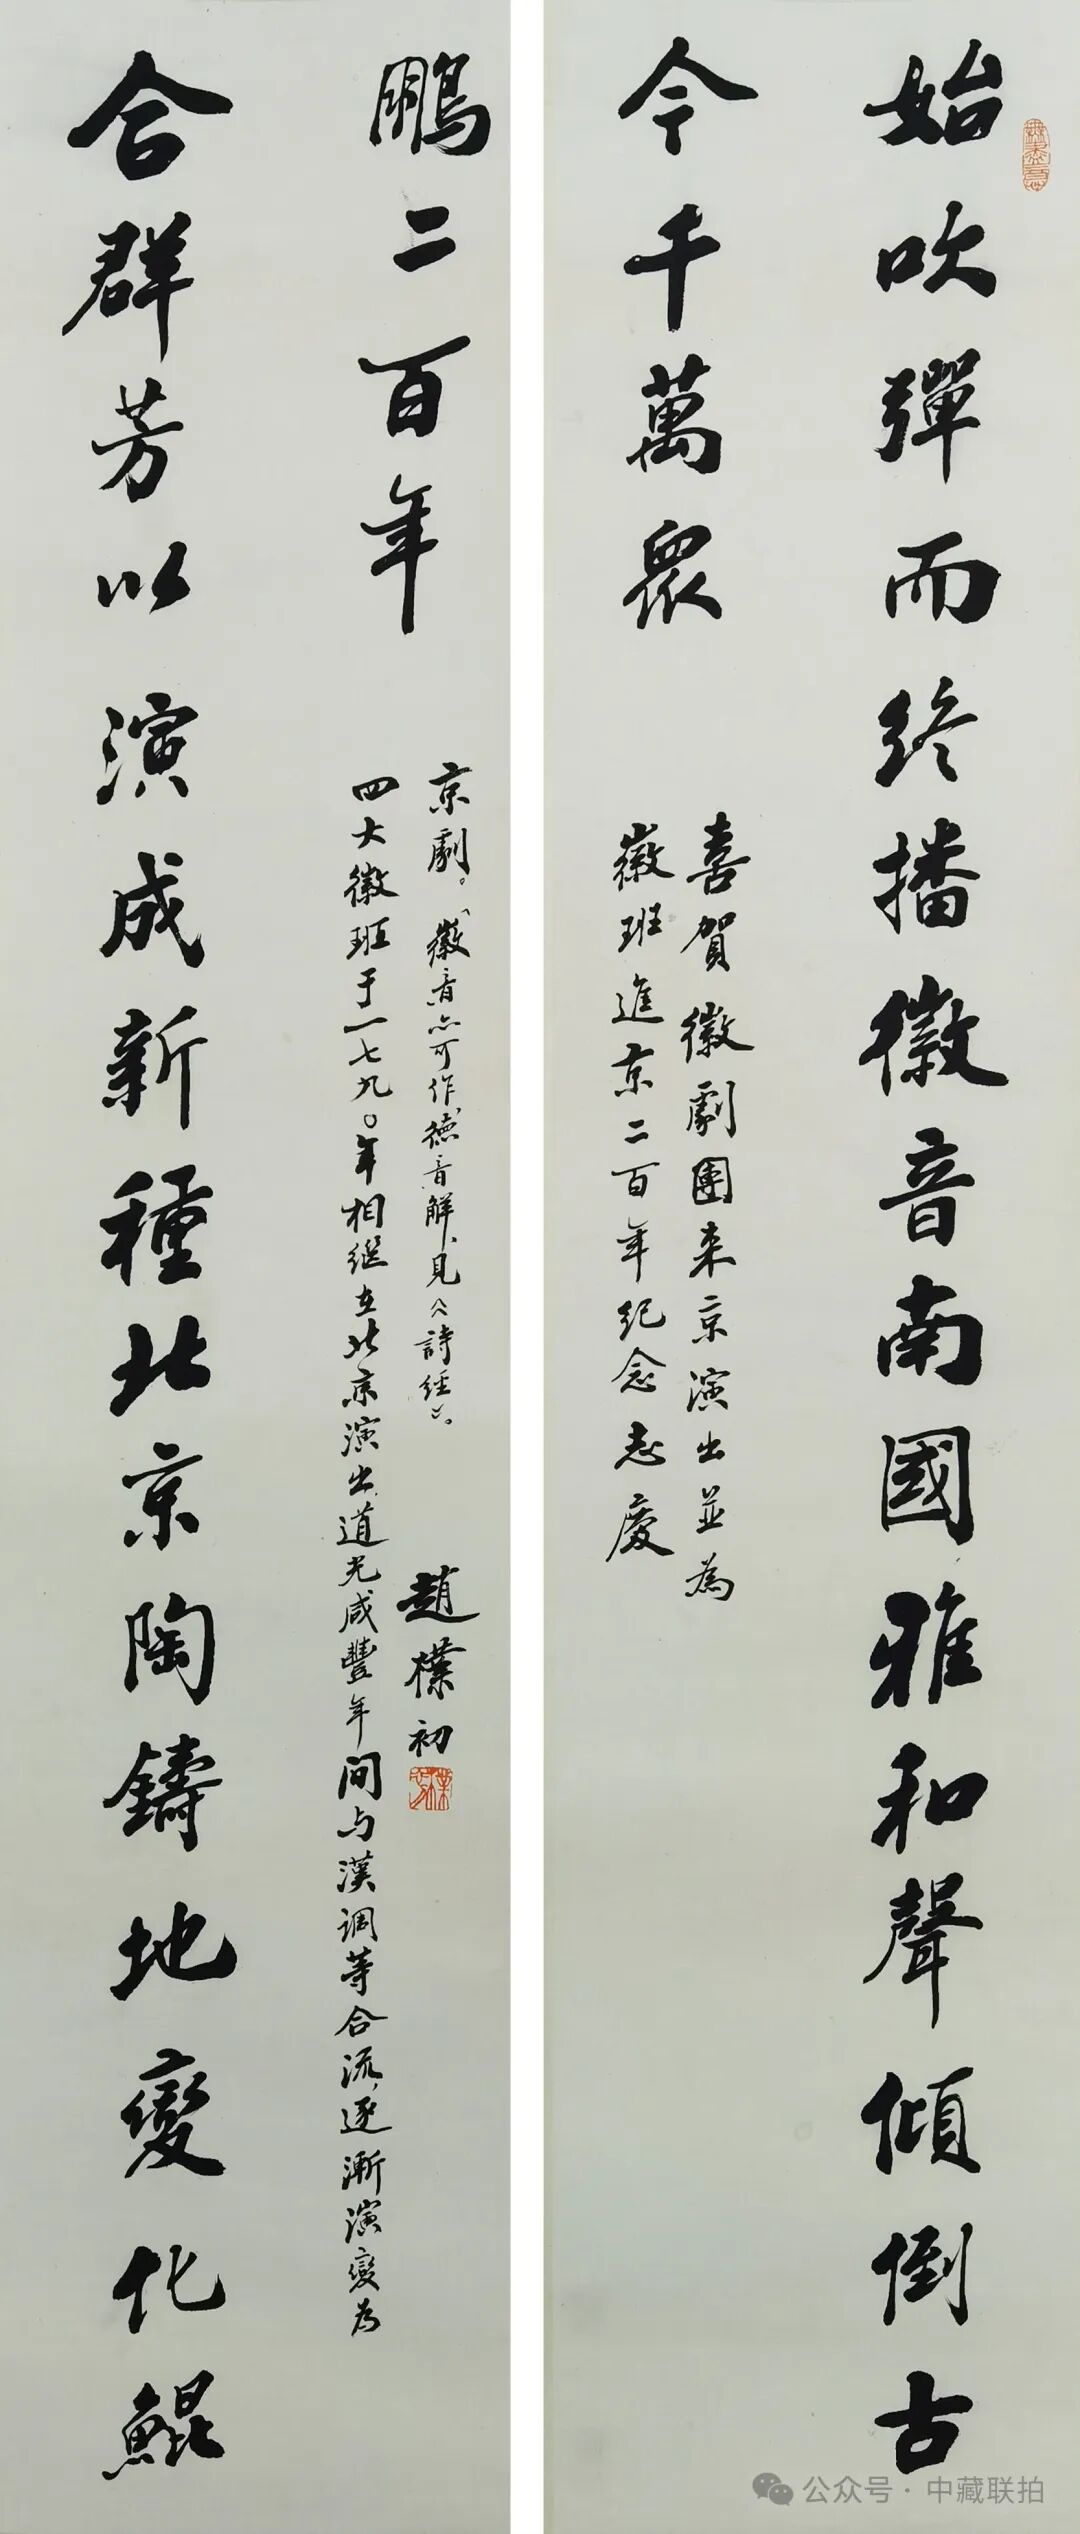 無盡意
始吹彈而終播徽音南國雅和聲傾倒古
今千萬眾
喜賀徽劇團来京演出並為
徽班進京二百年纪念志慶
合群芳以演成新種北京陶鑄地變化鯤
鵬二百年
四大徽班于一七九〇年相继在北京演出,道光咸豐年间与漢调等合流,逐漸演變为
京劇。「徽音」亦可作「德音」解,見《詩經》。
趙樸初
樸初
公众号·中藏联拍